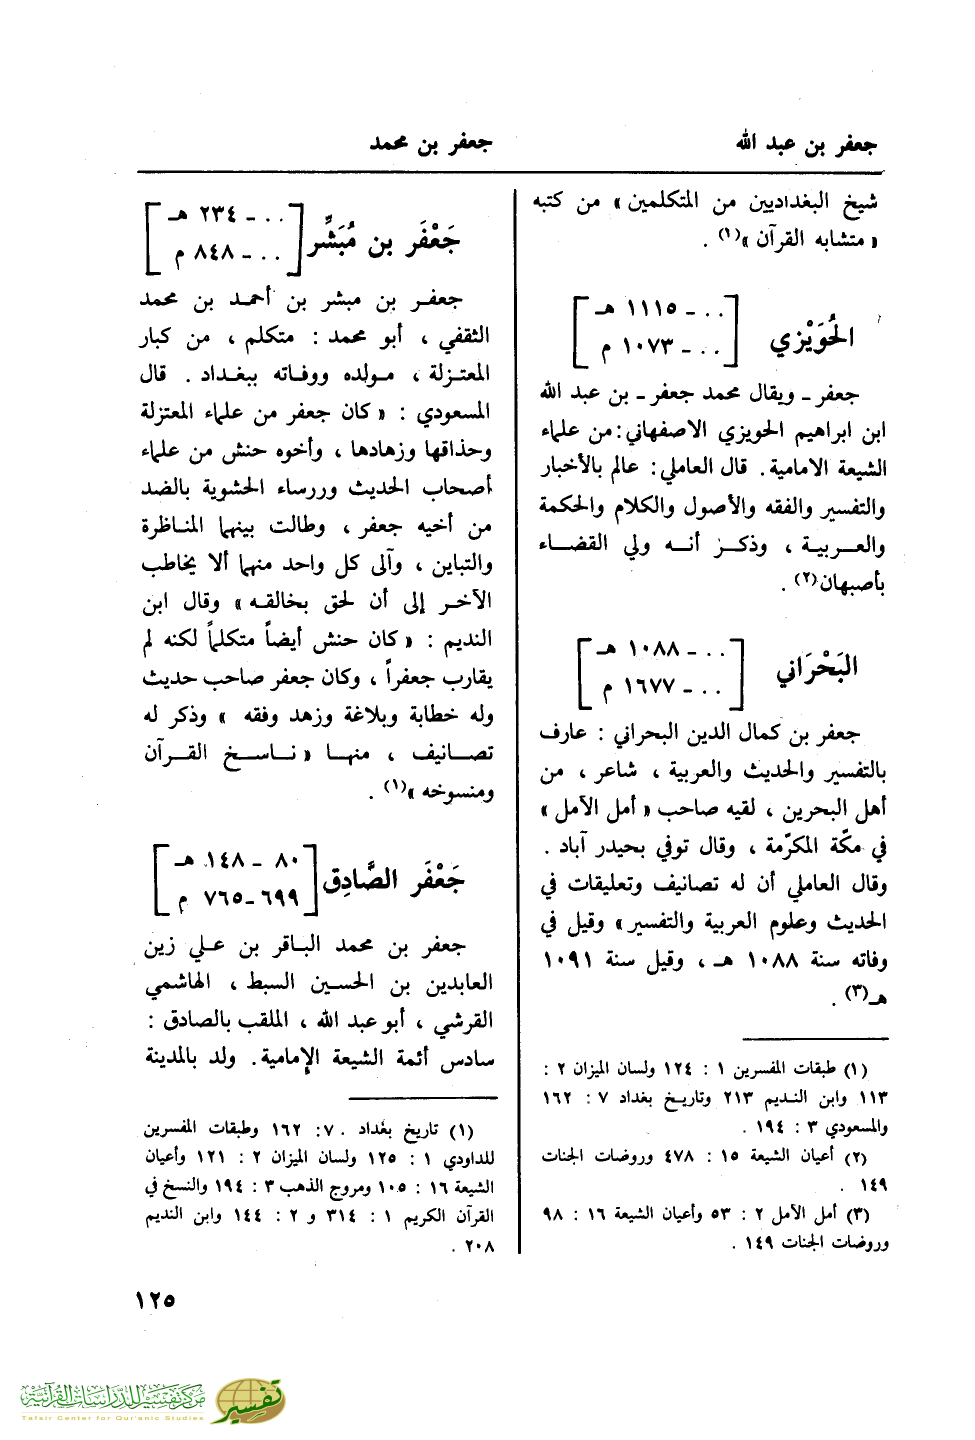 جعفر بن عبد الله
جعفر بن محمد
شيخ البغداديين من المتكلمين» من كتبه
«متشابه القرآن»(١) .
الحُوَيْزي
. . ـ ١١١٥ هـ
. . ـ ١٠٧٣ م
جعفر ـ ويقال محمد جعفر ـ بن عبد الله
ابن ابراهيم الحويزي الاصفهاني: من علماء
الشيعة الامامية. قال العاملي: عالم بالأخبار
والتفسير والفقه والأصول والكلام والحكمة
والعربية ، وذكر أنه ولي القضاء
بأصبهان(٢) .
البَحْرَاني
. . ـ ١٠٨٨ هـ
. . ـ ١٦٧٧ م
جعفر بن كمال الدين البحراني : عارف
بالتفسير والحديث والعربية ، شاعر ، من
أهل البحرين ، لقيه صاحب «أمل الآمل»
في مكّة المكرّمة ، وقال توفي بحيدر آباد .
وقال العاملي أن له تصانيف وتعليقات في
الحديث وعلوم العربية والتفسير» وقيل في
وفاته سنة ١٠٨٨ هـ ، وقيل سنة ١٠٩١
هـ(٣) .
(١) طبقات المفسرين ١ : ١٢٤ ولسان الميزان ٢ :
١١٣ وابن النديم ٢١٣ وتاريخ بغداد ٧ : ١٦٢
والمسعودي ٣ : ١٩٤ .
(٢) أعيان الشيعة ١٥ : ٤٧٨ وروضات الجنات
١٤٩ .
(٣) أمل الآمل ٢ : ٥٣ وأعيان الشيعة ١٦ : ٩٨
وروضات الجنات ١٤٩ .
جَعْفَر بن مُبَشِّر
. . ـ ٢٣٤ هـ
. . ـ ٨٤٨ م
جعفر بن مبشر بن أحمد بن محمد
الثقفي ، أبو محمد : متكلم ، من كبار
المعتزلة ، مولده ووفاته ببغداد . قال
المسعودي : «كان جعفر من علماء المعتزلة
وحذاقها وزهادها ، وأخوه حنش من علماء
أصحاب الحديث وررساء الحشوية بالضد
من أخيه جعفر ، وطالت بينهما المناظرة
والتباين ، وآلى كل واحد منهما ألا يخاطب
الآخر إلى أن لحق بخالقه» وقال ابن
النديم : «كان حنش أيضاً متكلماً لكنه لم
يقارب جعفراً ، وكان جعفر صاحب حديث
وله خطابة وبلاغة وزهد وفقه » وذكر له
تصانيف ، منها «ناسخ القرآن
ومنسوخه»(١) .
جَعْفَر الصَّادِق
٨٠ ـ ١٤٨ هـ
٦٩٩ ـ ٧٦٥ م
جعفر بن محمد الباقر بن علي زين
العابدين بن الحسين السبط ، الهاشمي
القرشي ، أبو عبد الله ، الملقب بالصادق :
سادس أئمة الشيعة الإمامية. ولد بالمدينة
(١) تاريخ بغداد . ٧: ١٦٢ وطبقات المفسرين
للداودي ١ : ١٢٥ ولسان الميزان ٢ : ١٢١ وأعيان
الشيعة ١٦ : ١٠٥ ومروج الذهب ٣ : ١٩٤ والنسخ في
القرآن الكريم ١ : ٣١٤ و ٢ : ١٤٤ وابن النديم
٢٠٨ .
١٢٥
مركز تفسير للدراسات القرآنية
Tafsir Center for Qur'anic Studies
تفسير